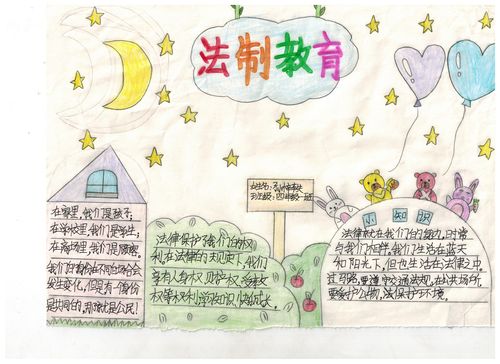 法制教育
姓名:
班级:四年级一班
在家里,我们是孩子;
在学校里,我们是学生;
在商场里,我们是顾客。
我们的身份在不同的场合会
发生变化,但是有一个身份
是共同的,那就是公民!
法律保护了我们的权
利在法律的规定下,我们
享有人身权,财产权,受教
权等权利学习知识,快乐成长。
小知识
法律就在我们的身边,时常
与我们相伴。我们生活在蓝天
和阳光下,但也生活在法律之中。
过马路,要遵守交通法规,在公共场所,
要爱护公物,法保护环境。